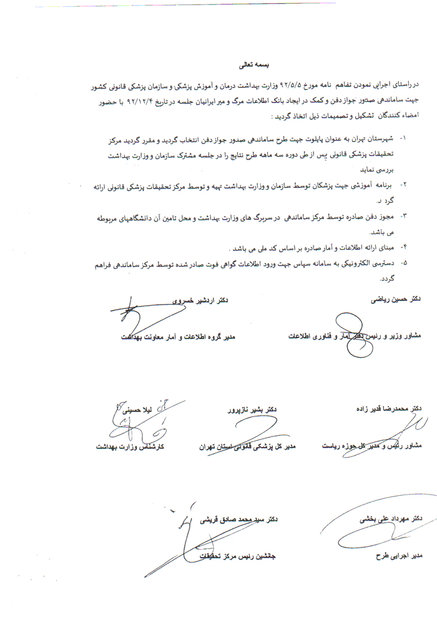 بسمه تعالی
در راستای اجرایی نمودن تفاهم نامه مورخ ۹۲/۵/۵ وزارت بهداشت درمان و آموزش پزشکی و سازمان پزشکی قانونی کشور
جهت ساماندهی صدور جواز دفن و کمک در ایجاد بانک اطلاعات مرگ و میر ایرانیان جلسه در تاریخ ۹۲/۱۲/۴ با حضور
امضاء کنندگان تشکیل و تصمیمات ذیل اتخاذ گردید :
۱- شهرستان تهران به عنوان پایلوت جهت طرح ساماندهی صدور جواز دفن انتخاب گردید و مقرر گردید مرکز
تحقیقات پزشکی قانونی پس از طی دوره سه ماهه طرح نتایج را در جلسه مشترک سازمان و وزارت بهداشت
بررسی نماید
۲- برنامه آموزشی جهت پزشکان توسط سازمان و وزارت بهداشت تهیه و توسط مرکز تحقیقات پزشکی قانونی ارائه
گرد د.
۳- مجوز دفن صادره توسط مرکز ساماندهی در سربرگ های وزارت بهداشت و محل تامین آن دانشگاههای مربوطه
می باشد.
۴- مبنای ارائه اطلاعات و آمار صادره بر اساس کد ملی می باشد .
۵- دسترسی الکترونیکی به سامانه سپاس جهت ورود اطلاعات گواهی فوت صادر شده توسط مرکز ساماندهی فراهم
گردد.
دکتر حسین ریاضی دکتر اردشیر خسروی
مشاور وزیر و رئیس دفتر آمار و فناوری اطلاعات مدیر گروه اطلاعات و آمار معاونت بهداشت
دکتر محمدرضا قدیر زاده دکتر بشیر نازپرور لیلا حسینی
مشاور رئیس و مدیر کل حوزه ریاست مدیر کل پزشکی قانونی استان تهران کارشناس وزارت بهداشت
دکتر مهرداد علی بخشی دکتر سید محمد صادق قریشی
مدیر اجرایی طرح جانشین رئیس مرکز تحقیقات